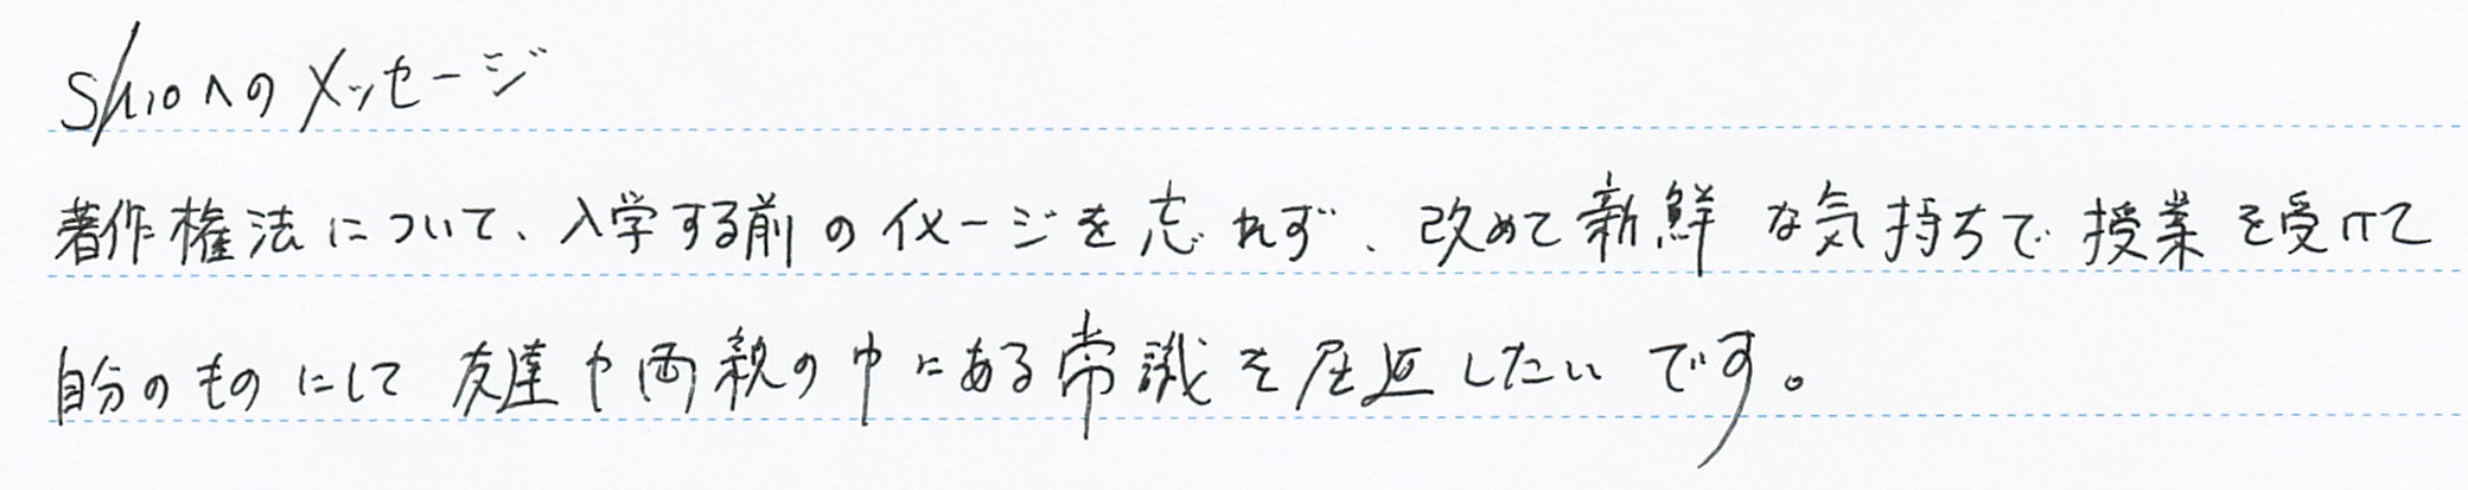 Shioへのメッセージ
著作権法について、入学する前のイメージを忘れず、改めて新鮮な気持ちで授業を受けて
自分のものにして友達や両親の中にある常識をしたいです。